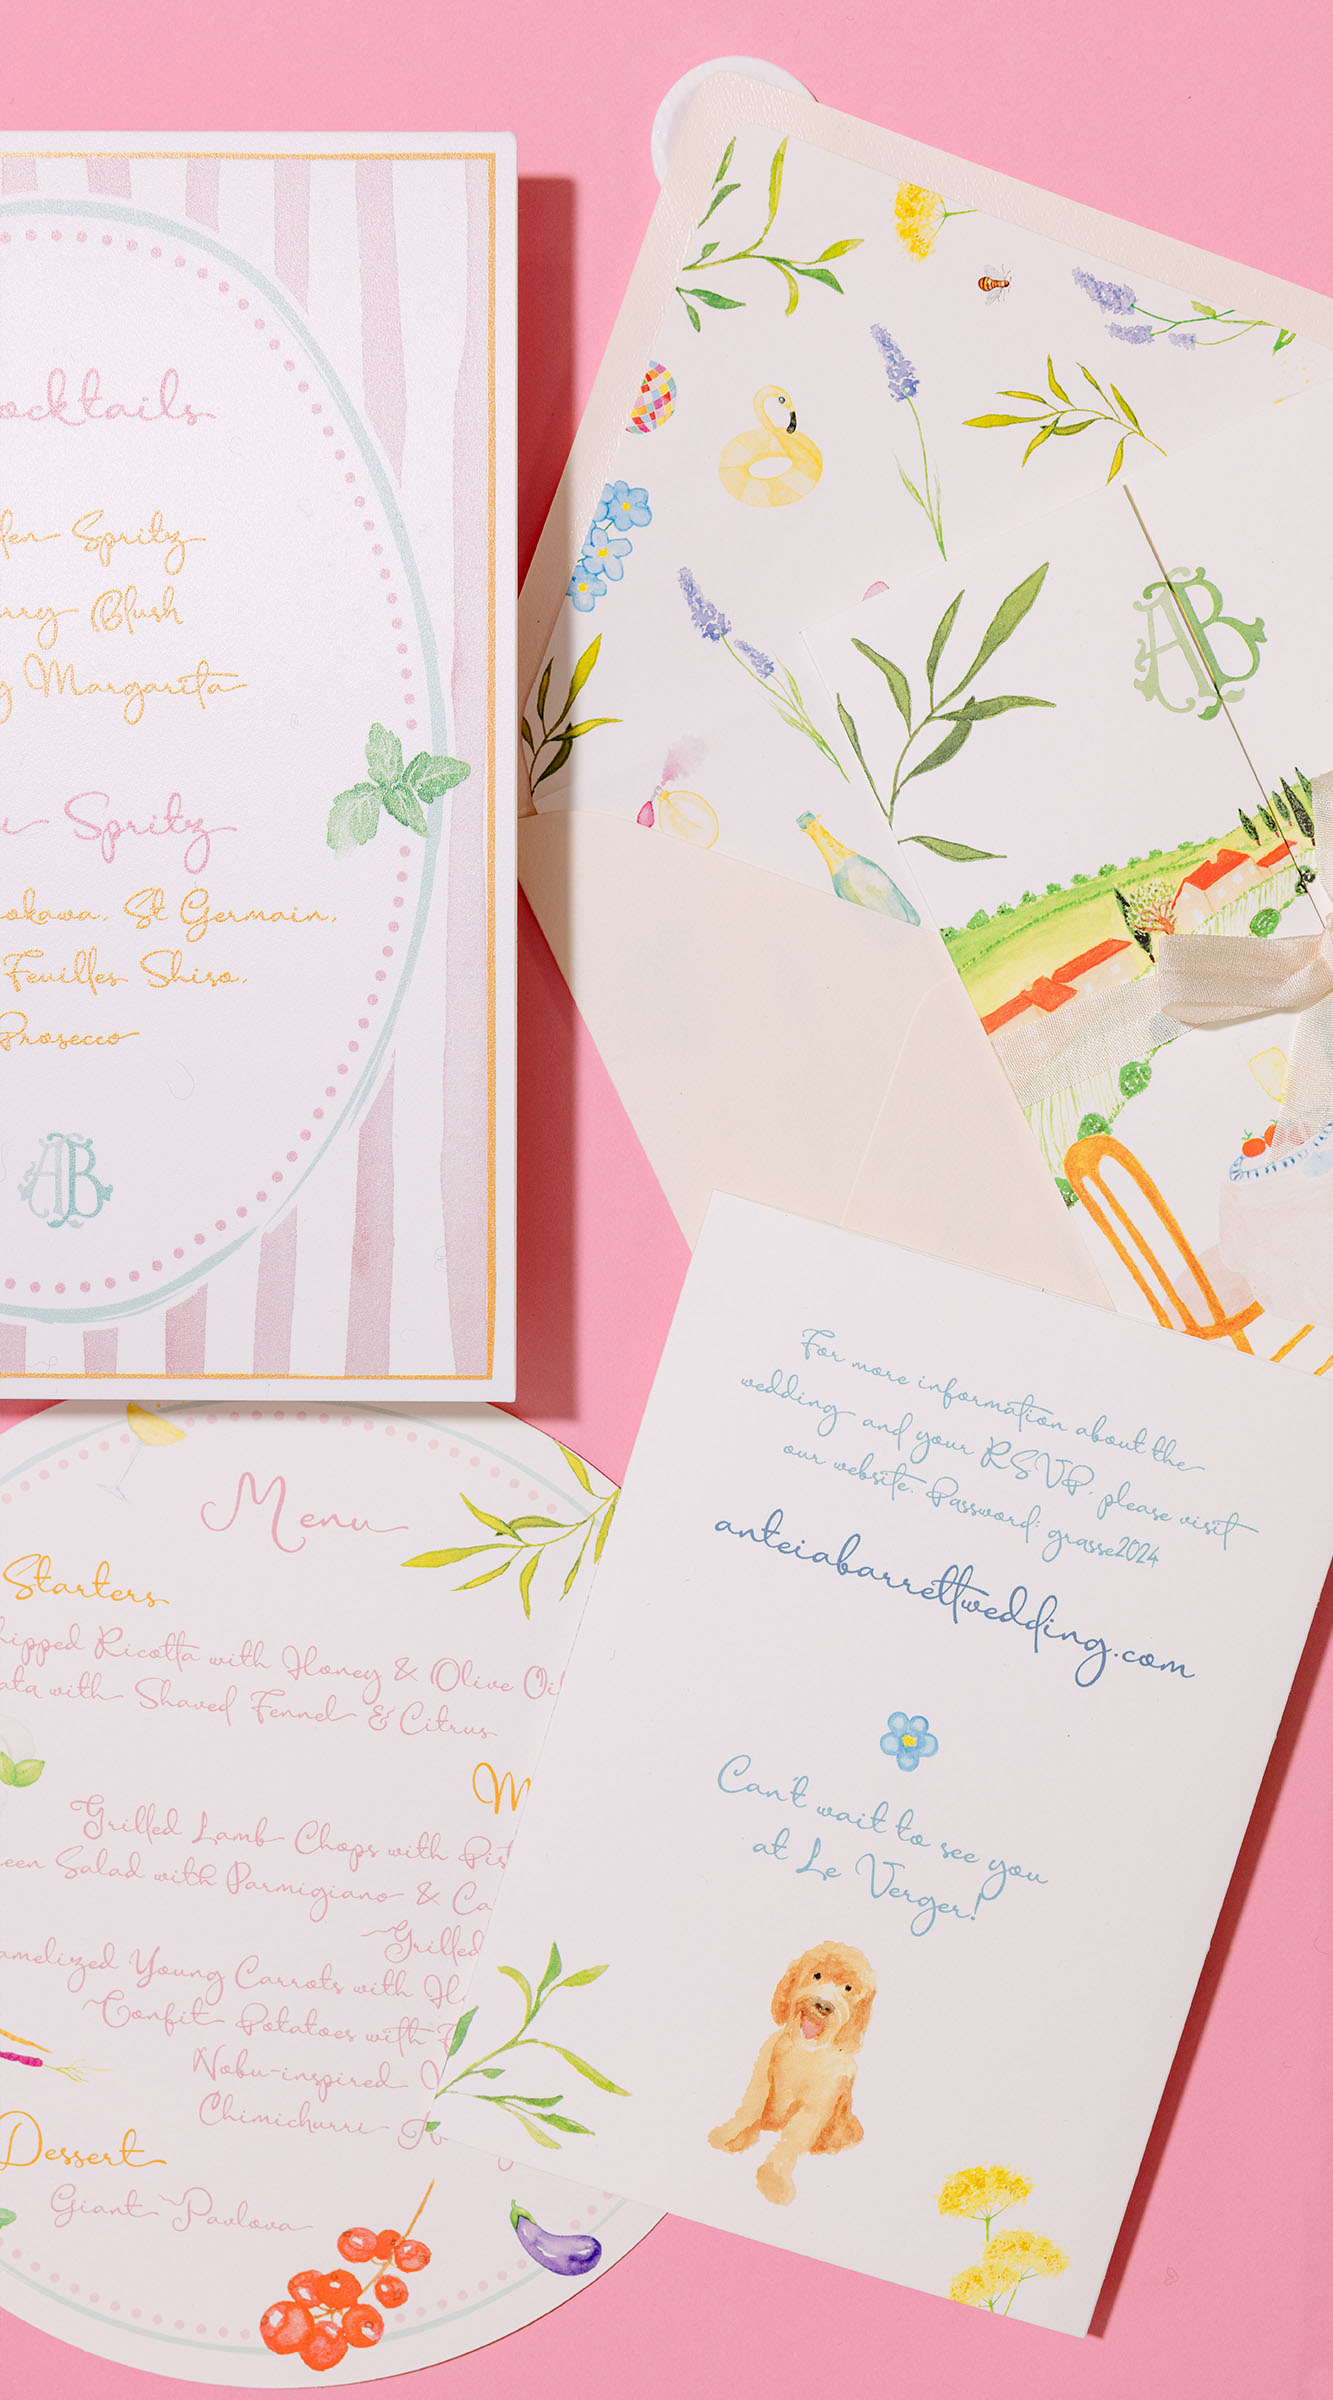 ocktails
Spritz
Blush
Margarita
Spritz
St Germain,
Feuilles Shiso,
Prosecco
AB
AB
For more information about the
wedding and your RSVP, please visit
our website. Password: grasse2024
anteiabarrettwedding.com
Can't wait to see you
at Le Verger!
Menu
Starters
hipped Ricotta with Honey & Olive Oi
ata with Shaved Fennel & Citrus
M
Grilled Lamb Chops with Pis
een Salad with Parmigiano & Ca
Grilled
amelized Young Carrots with H
Confit Potatoes with
Nobu-inspired
Chimichurri
Dessert
Giant Pavlova